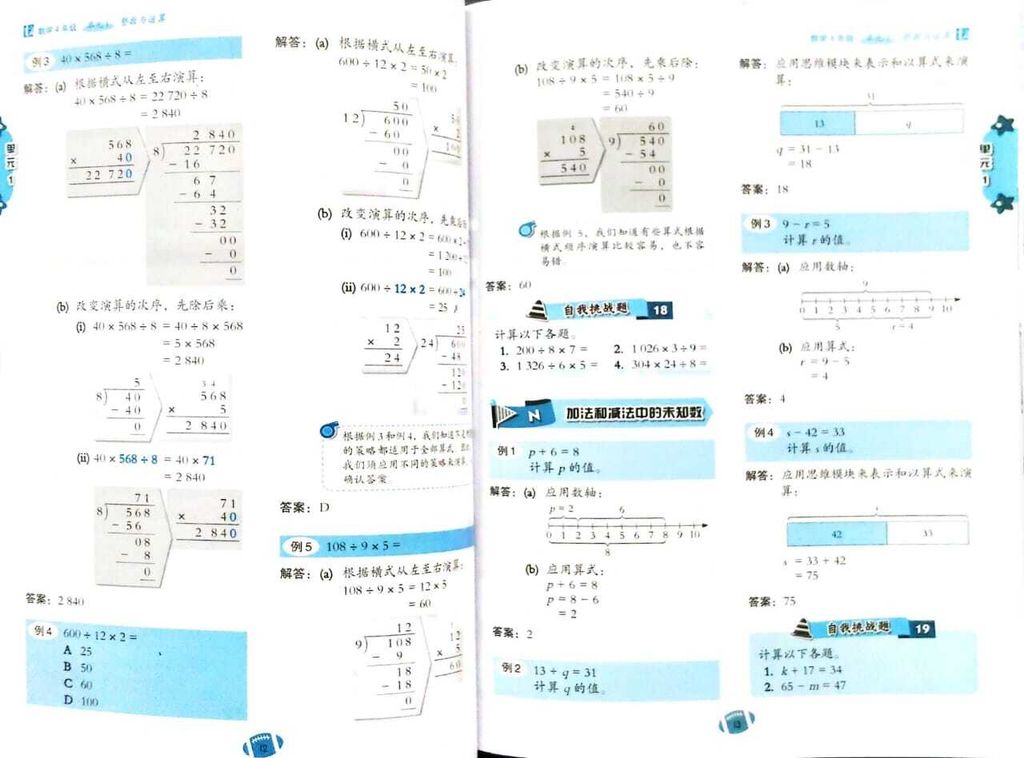 数学4年级 单元1 整数与运算
例3 40 × 568 ÷ 8 =
解答: (a) 根据横式从左至右演算:
40 × 568 ÷ 8 = 22 720 ÷ 8
= 2 840
568
× 40
22 720
2 840
8) 22 720
− 16
6 7
− 6 4
32
− 32
00
− 0
0
(b) 改变演算的次序，先除后乘:
(i) 40 × 568 ÷ 8 = 40 ÷ 8 × 568
= 5 × 568
= 2 840
5
8) 40
− 40
0
3 4
568
× 5
2 840
(ii) 40 × 568 ÷ 8 = 40 × 71
= 2 840
71
8) 568
− 56
08
− 8
0
71
× 40
2 840
答案: 2 840
例4 600 ÷ 12 × 2 =
A 25
B 50
C 60
D 100
12
解答: (a) 根据横式从左至右演算:
600 ÷ 12 × 2 = 50 × 2
= 100
50
12) 600
− 60
00
− 0
0
×
100
(b) 改变演算的次序，先乘后除
(i) 600 ÷ 12 × 2 = 600 × 2
= 1 200 ÷
= 100
(ii) 600 ÷ 12 × 2 = 600 ÷ 24
= 25
12
× 2
24
25
24) 600
− 48
120
− 120
0
根据例3和例4，我们知道
的策略都适用于全部算式
我们须应用不同的策略来演算
确认答案
答案: D
例5 108 ÷ 9 × 5 =
解答: (a) 根据横式从左至右演算:
108 ÷ 9 × 5 = 12 × 5
= 60
12
9) 108
− 9
18
− 18
0
12
× 5
60
(b) 改变演算的次序，先乘后除:
108 ÷ 9 × 5 = 108 × 5 ÷ 9
= 540 ÷ 9
= 60
4
108
× 5
540
60
9) 540
− 54
00
− 0
0
根据例5，我们知道有些算式根据
横式顺序演算比较容易，也不容
易错。
答案: 60
自我挑战题 18
计算以下各题。
1. 200 ÷ 8 × 7 = 2. 1 026 × 3 ÷ 9 =
3. 1 326 ÷ 6 × 5 = 4. 304 × 24 ÷ 8 =
N 加法和减法中的未知数
例1 p + 6 = 8
计算 p 的值。
解答: (a) 应用数轴:
p = 2 6
0 1 2 3 4 5 6 7 8 9 10
8
(b) 应用算式:
p + 6 = 8
p = 8 − 6
= 2
答案: 2
例2 13 + q = 31
计算 q 的值。
13
数学4年级 单元1 整数与运算
解答: 应用思维模块来表示和以算式来演
算:
31
13 q
q = 31 − 13
= 18
答案: 18
例3 9 − r = 5
计算 r 的值。
解答: (a) 应用数轴:
9
0 1 2 3 4 5 6 7 8 9 10
5 r = 4
(b) 应用算式:
r = 9 − 5
= 4
答案: 4
例4 s − 42 = 33
计算 s 的值。
解答: 应用思维模块来表示和以算式来演
算:
s
42 33
s = 33 + 42
= 75
答案: 75
自我挑战题 19
计算以下各题。
1. k + 17 = 34
2. 65 − m = 47
单元1
单元1